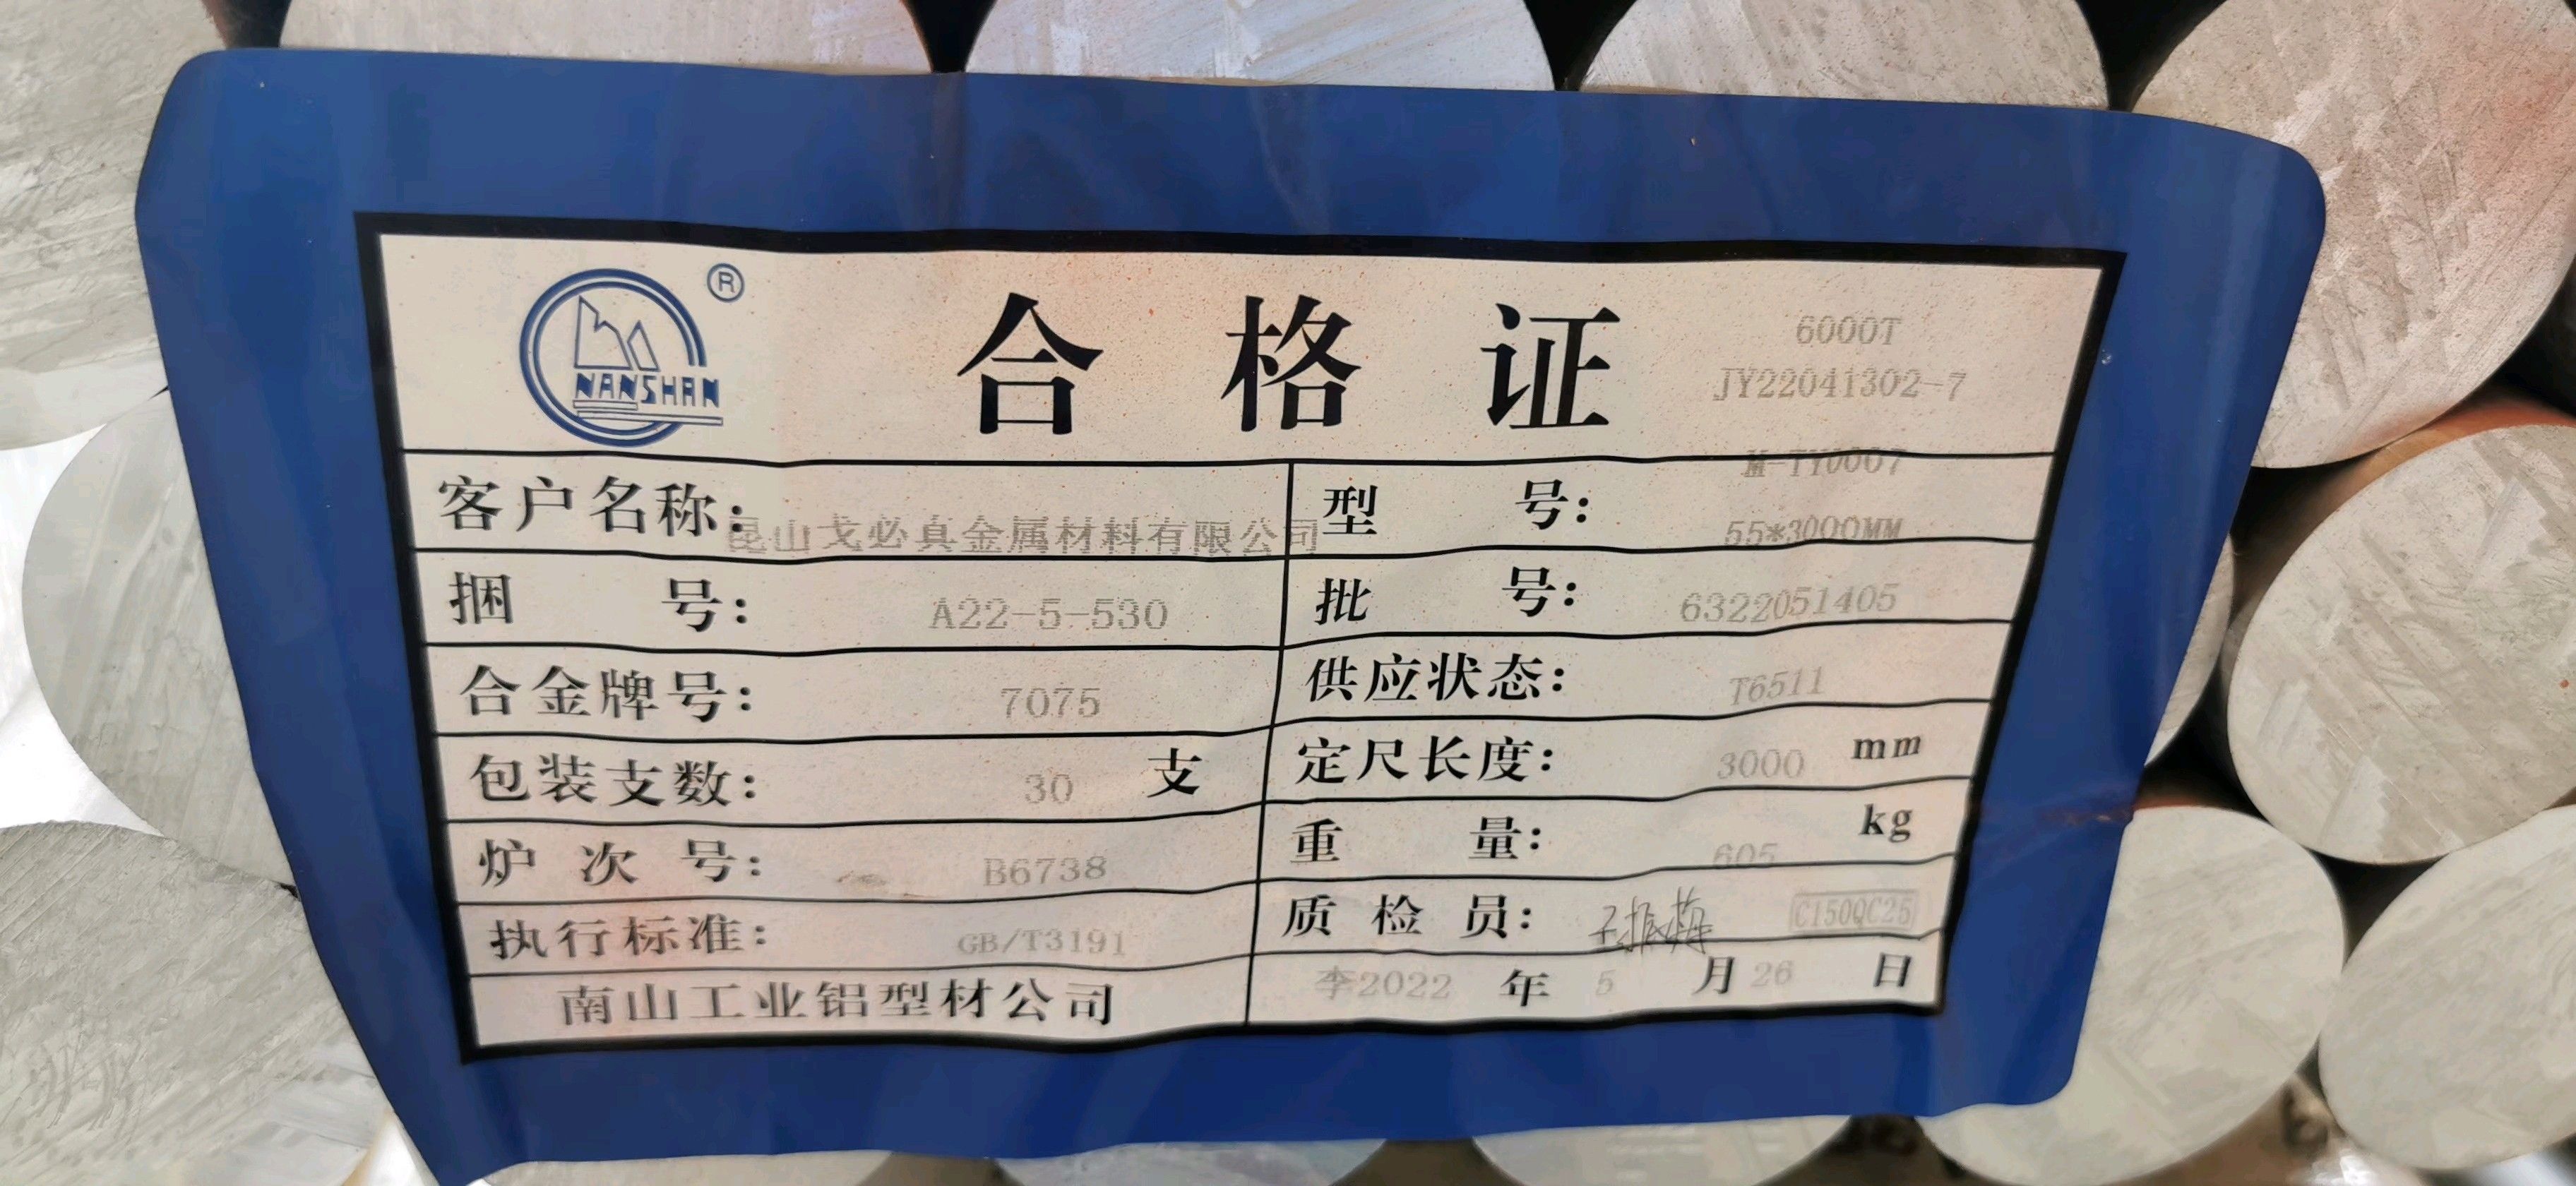 NANSHAN ®
合格证
6000T
JY22041302-7
客户名称: 昆山戈必真金属材料有限公司
型号: M-TY0007
55*3000MM
捆号: A22-5-530
批号: 6322051405
合金牌号: 7075
供应状态: T6511
包装支数: 30 支
定尺长度: 3000 mm
炉次号: B6738
重量: 605 kg
执行标准: GB/T3191
质检员: C150QC25
南山工业铝型材公司
李2022 年 5 月 26 日